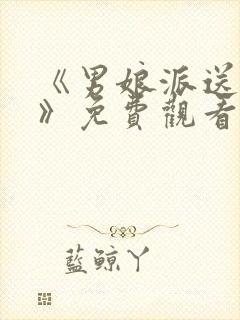 《男娘派送
》免費觀看
藍鯨丫